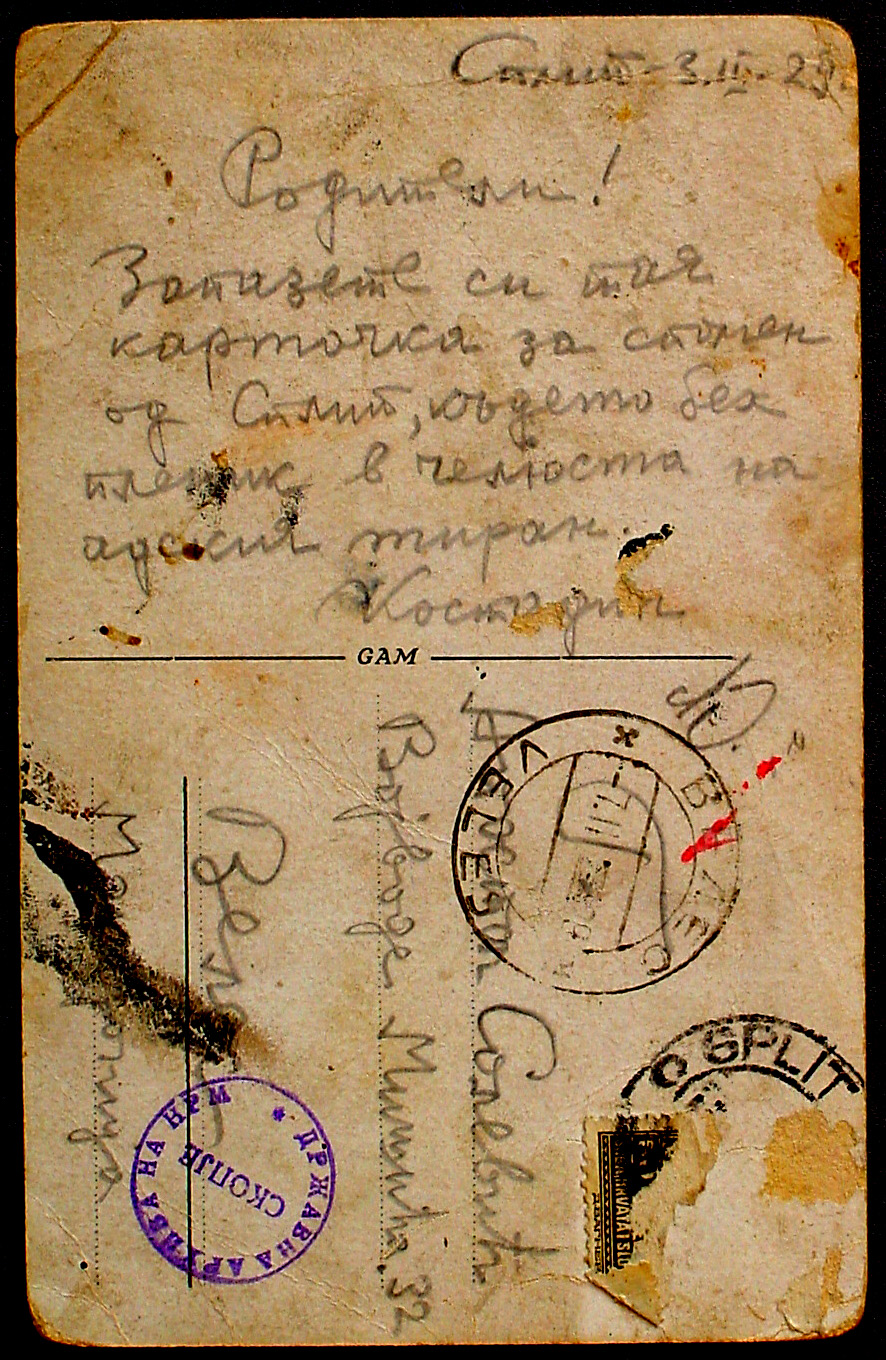 Сплит - 3.III.29.
Родители!
Запазете си тая
карточка за спомен
од Сплит, където бех
пленик в челюста на
адския тиран.
Костадин
GAM
Солевић
Војводе Мишића 32
VELES
ВЕЛЕС
SPLIT
ДРЖАВНА АРХИВА НА НРМ
СКОПЈЕ